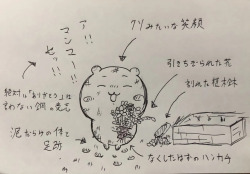 ア!!
マンマー!!
セッ!!
クソみたいな笑顔
引きちぎられた花
割れた植木鉢
絶対に「ありがとう」は
言わない鋼の意志
泥だらけの体と
足跡
なくしたはずのハンカチ